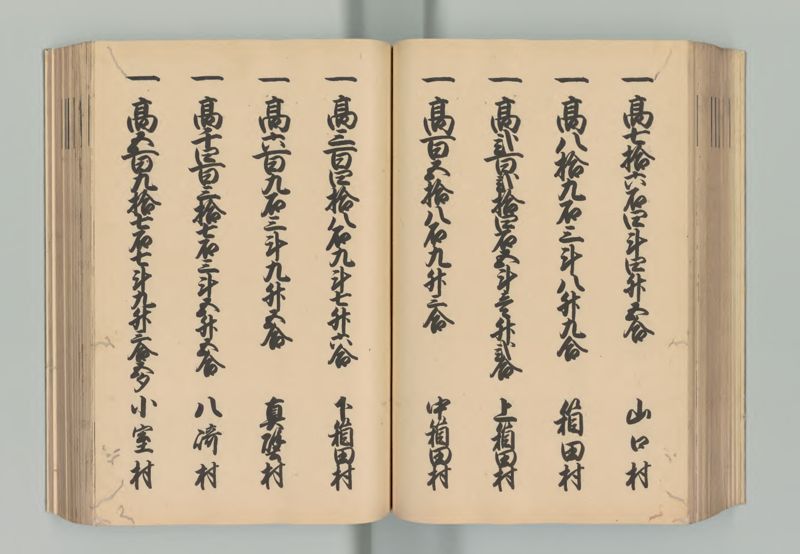 一 高七拾六石四斗四升五合 山口村
一 高八拾九石三斗八升九合 箱田村
一 高弐百弐拾四石五斗壱升弐合 上箱田村
一 高百五拾八石九升三合 中箱田村
一 高三百四拾八石九斗七升六合 下箱田村
一 高六百九石三斗九升五合 真壁村
一 高千四百三拾七石三斗五升五合 八崎村
一 高五百九拾七石七斗九升三合五夕 小室村